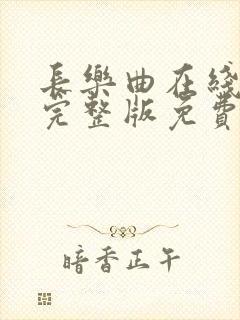 長樂曲在綫
完整版免費
暗香正午